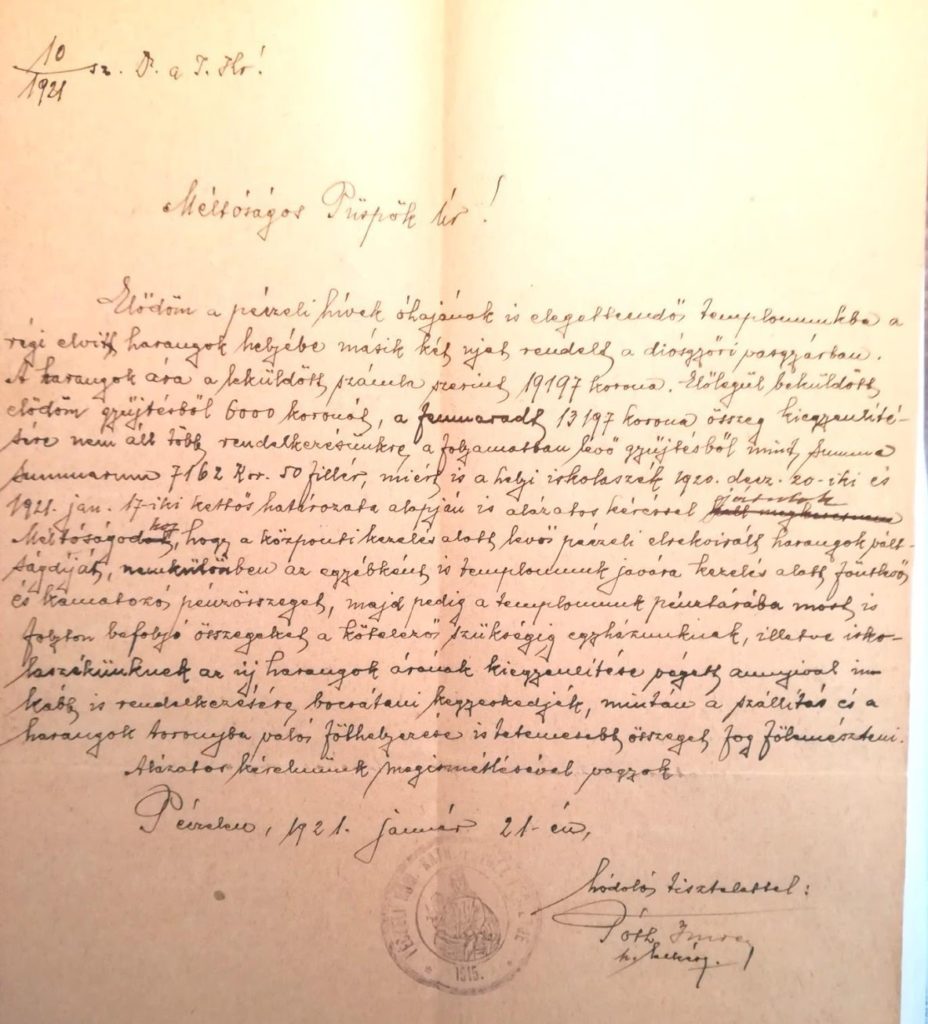 10/1921 sz. D. a J. Kr!
Méltóságos Püspök Úr!
Elődöm a péczeli hívek óhajának is elegetteendő templomunkba a
régi elvitt harangok helyébe másik két ujat rendelt a diósgyőri vasgyárban.
A harangok ára a leküldött számla szerint 19197 korona. Előlegül beküldött
elődöm gyűjtésből 6000 koronát, a fennmaradt 13197 korona összeg kiegyenlíté-
sére nem áll több rendelkezésünkre a folyamatban lévő gyűjtésből mint, summa
summarum 7162 kor. 50 fillér, miért is a helyi iskolaszék 1920. decz. 20-iki és
1921. jan. 17-iki kettős határozata alapján is alázatos kéréssel járulok
Méltóságodhoz, hogy a központi kezelés alatt levő péczeli elrekvirált harangok vált-
ságdíját, nemkülönben az egyébként is templomunk javára kezelés alatt
és kamatozó pénzösszeget, majd pedig a templomunk pénztárába most is
folyton befolyó összegeket a kötelező szükségig egyházunknak, illetve isko-
laszékünknek az új harangok árának kiegyenlítése végett annyival in-
kább is rendelkezésére bocsátani kegyeskedjék, miután a szállítás és a
harangok toronyba való fölhelyezése is tetemesebb összeget fog fölemészteni.
Alázatos kérelmünk megismétlésével vagyok
Péczelen, 1921. január 21-én,
hódoló tisztelettel:
Tóth Imre
1915.